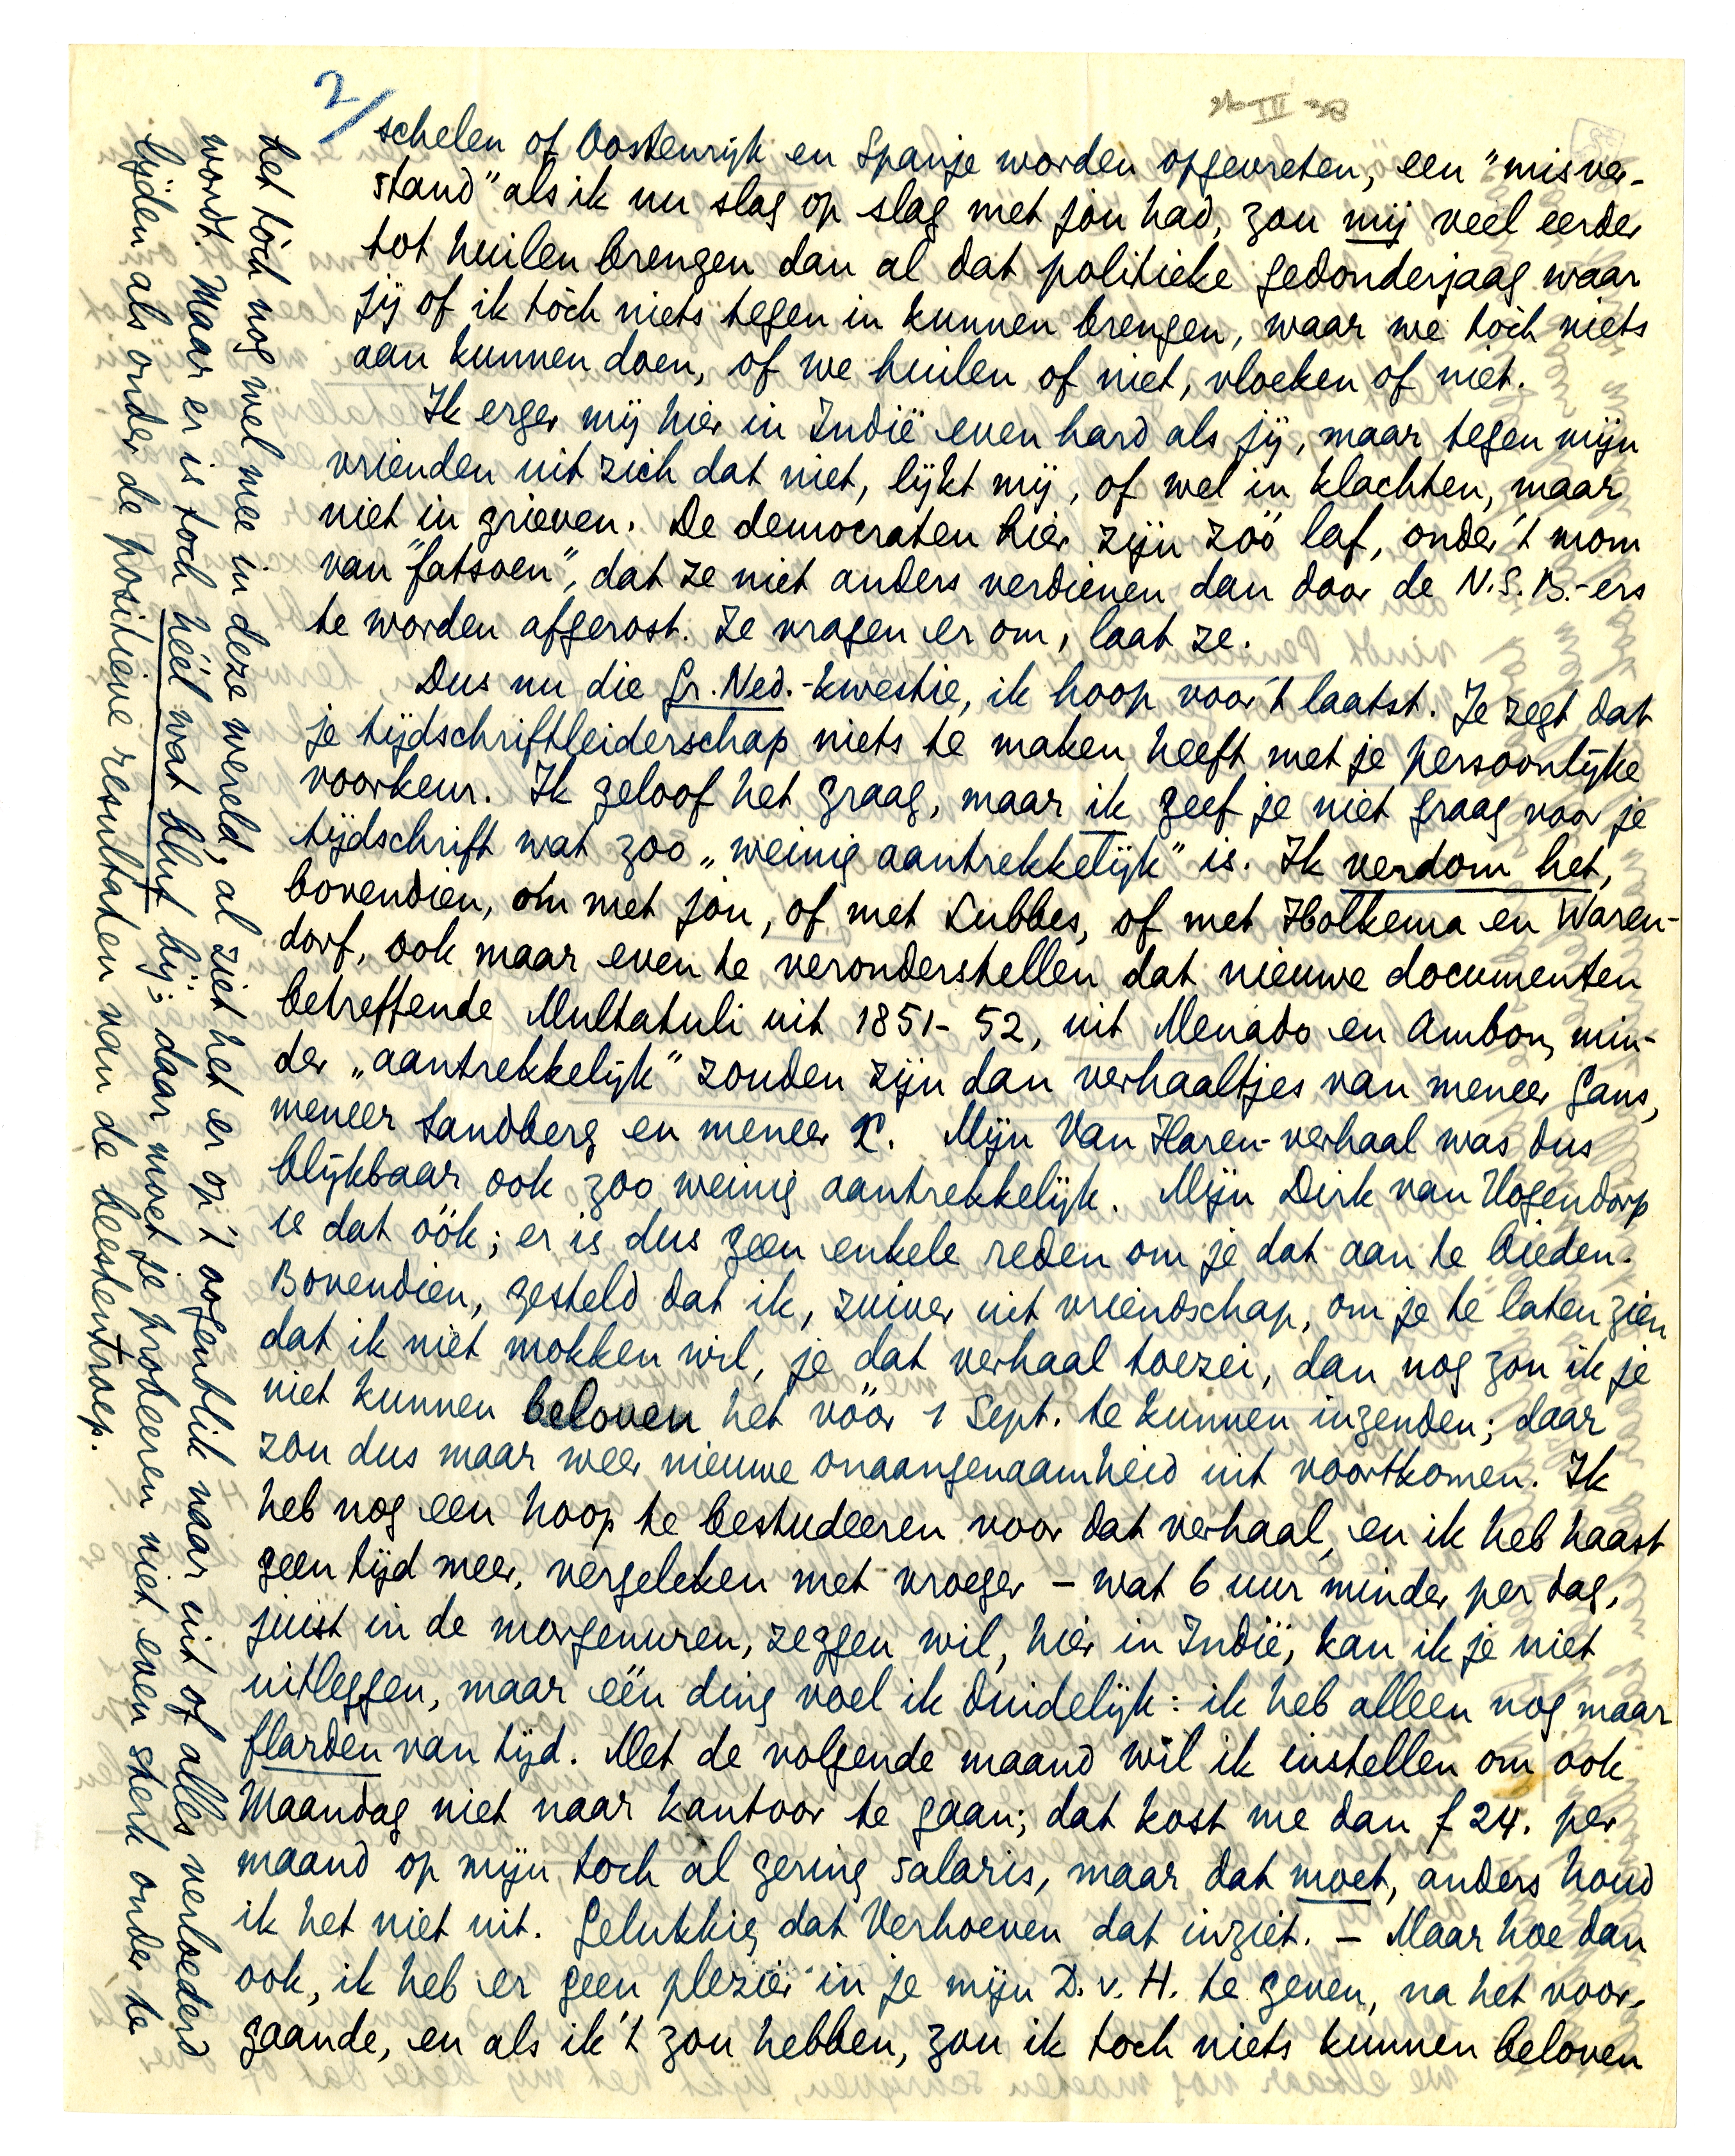 2/
schelen of Oostenrijk en Spanje worden opgevreten, een "misver-
stand" als ik nu slag op slag met jou had, zou mij veel eerder
tot huilen brengen dan al dat politieke gedonderjaag waar
jij of ik tòch niets tegen in kunnen brengen, waar we tòch niets
aan kunnen doen, of we huilen of niet, vloeken of niet.
Ik erger mij hier in Indië even hard als jij, maar tegen mijn
vrienden uit zich dat niet, lijkt mij, of wel in klachten, maar
niet in grieven. De democraten hier zijn zóó laf, onder 't mom
van "fatsoen", dat ze niet anders verdienen dan door de N.S.B.-ers
te worden afgerost. Ze vragen er om, laat ze.
Dus nu die Gr. Ned.-kwestie, ik hoop voor 't laatst. Je zegt dat
je tijdschriftleiderschap niets te maken heeft met je persoonlijke
voorkeur. Ik geloof het graag, maar ik geef je niet graag voor je
tijdschrift wat zoo „weinig aantrekkelijk" is. Ik verdom het,
bovendien, om met jou, of met Lubbes, of met Holkema en Waren-
dorf, ook maar even te veronderstellen dat nieuwe documenten
betreffende Multatuli uit 1851-52, uit Menado en Ambon, min-
der „aantrekkelijk" zouden zijn dan verhaaltjes van meneer Gans,
meneer Sandberg en meneer X. Mijn Van Haren-verhaal was dus
blijkbaar ook zoo weinig aantrekkelijk. Mijn Dirk van Hogendorp
is dat óók; er is dus geen enkele reden om je dat aan te bieden.
Bovendien, gesteld dat ik, zuiver uit vriendschap, om je te laten zien
dat ik niet mokken wil, je dat verhaal toezei, dan nog zou ik je
niet kunnen beloven het vóór 1 Sept. te kunnen inzenden; daar
zou dus maar weer nieuwe onaangenaamheid uit voortkomen. Ik
heb nog een hoop te bestudeeren voor dat verhaal, en ik heb haast
geen tijd meer, vergeleken met vroeger – wat 6 uur minder per dag,
juist in de morgenuren, zeggen wil, hier in Indië, kan ik je niet
uitleggen, maar één ding voel ik duidelijk: ik heb alleen nog maar
flarden van tijd. Met de volgende maand wil ik instellen om ook
Maandag niet naar kantoor te gaan; dat kost me dan f 24. per
maand op mijn toch al gering salaris, maar dat moet, anders houd
ik het niet uit. Gelukkig dat Verhoeven dat inziet. – Maar hoe dan
ook, ik heb er geen plezier in je mijn D. v. H. te geven, na het voor-
gaande, en als ik 't zou hebben, zou ik toch niets kunnen beloven
het tòch nog wel mee in deze wereld, al ziet het er op 't oogenblik naar uit of alles verloederd
wordt. Maar er is toch héél wat bluf bij; daar moet je probeeren niet even sterk onder te
lijden als onder de positieve resultaten van de beestentroep.